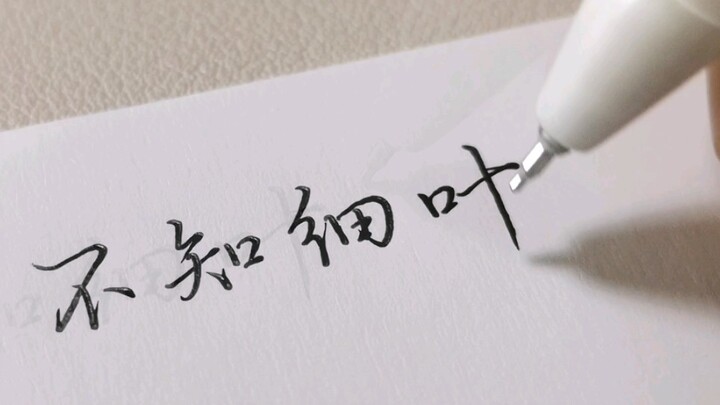 不知细叶